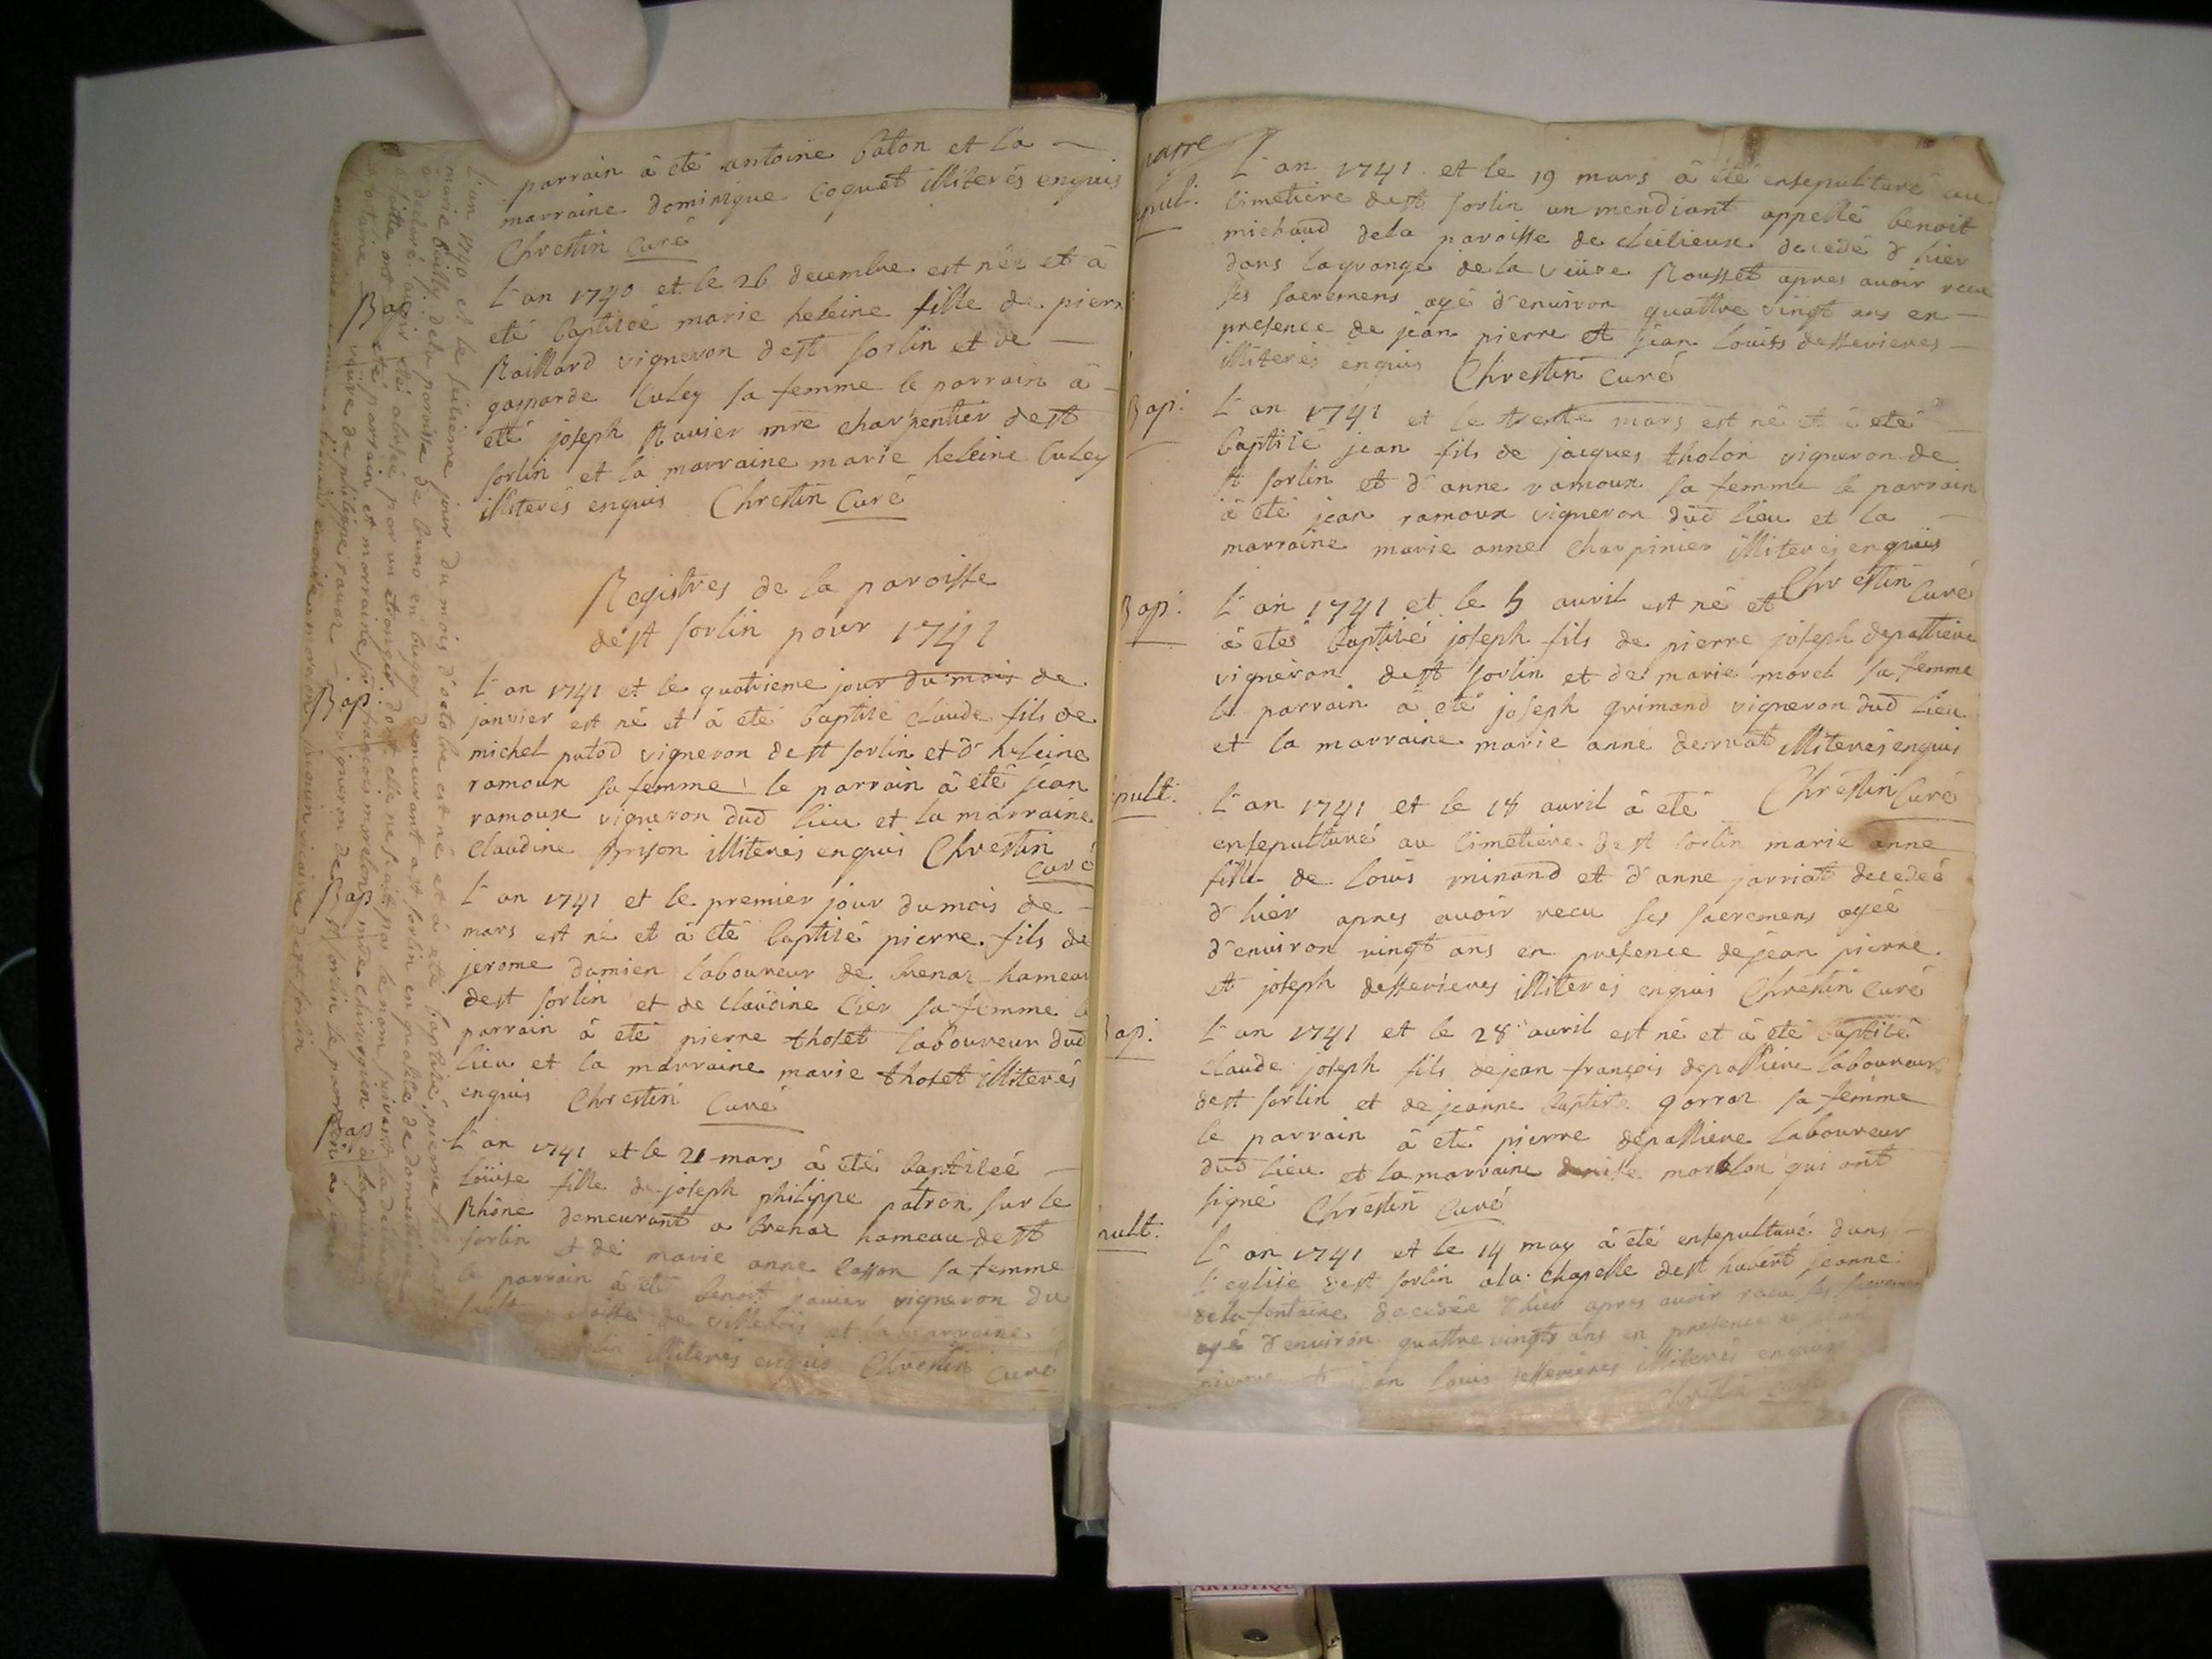 parrain â eté antoine baton et la
marraine dominique Coquet illiterés enquis
Chrestin Curé
Bap.
L'an 1740 et le 26 decembre est née et â
eté baptisée marie heleine fille de pierre
Raillard vigneron de st sorlin et de
gasparde Culey sa femme le parrain â
eté joseph Mre charpentier de st
sorlin et la marraine marie heleine Culey
illiterés enquis Chrestin Curé
Registres de la paroisse
de st sorlin pour 1741
Bap.
L'an 1741 et le quatrieme jour du mois de
janvier est né et â eté baptisé claude fils de
michel putod vigneron de st sorlin et d'heleine
ramoux sa femme le parrain â eté jean
ramoux vigneron dud lieu et la marraine
claudine Brison illiterés enquis Chrestin
Curé
Bap
L'an 1741 et le premier jour du mois de
mars est né et â eté baptisé pierre fils de
jerome damien laboureur de brenaz hameau
de st sorlin et de claudine Cier sa femme le
parrain â eté pierre tholet laboureur dud
lieu et la marraine marie tholet illiterés
enquis Chrestin Curé
Bap
L'an 1741 et le 21 mars â eté baptisée
loüise fille de joseph philippe patron sur le
Rhône demeurant a brenaz hameau de st
sorlin et de marie anne lasson sa femme
le parrain â eté benoit janier vigneron du
de villebois et la marraine
illiterés enquis Chrestin Curé
L'an 1740 et le seisieme jour du mois d'octobre est né et â eté baptisé pierre fils
marie bailly de la paroisse de en bugey demeurant a st sorlin en qualité de domestique
â declaré avoir eté abusée par un etranger dont elle ne sçait pas le nom suivant la
faitte ont eté parrain et marraine sr françois morelon mtre chirurgien a lagnieu
veuve de philippe ravaz vigneron de st sorlin le parrain a signé
vicaire de st sorlin
L'an 1741 et le 19 mars â eté ensepulturé au
Cimetiere de st sorlin un mendiant appellé benoit
michaud de la paroisse de decedé d'hier
dans la grange de la veuve Rousset apres avoir receu
ses sacremens agé d'environ quattre vingt ans en
presence de jean pierre et jean louis desserieres
illiterés enquis Chrestin Curé
Bap.
L'an 1741 et le trente mars est né et â eté
baptisé jean fils de jacques tholon vigneron de
st sorlin et d'anne ramoux sa femme le parrain
â eté jean ramoux vigneron dud lieu et la
marraine marie anne Charpinier illiterés enquis
Chrestin Curé
Bap.
L'an 1741 et le 5 avril est né et
â eté baptisé joseph fils de pierre joseph depassiere
vigneron de st sorlin et de marie morel sa femme
le parrain â eté joseph grimand vigneron dud lieu
et la marraine marie anne derruat illiterés enquis
Chrestin Curé
pult.
L'an 1741 et le 18 avril â eté
ensepulturé au Cimetiere de st sorlin marie anne
fille de loüis minand et d'anne jarriat decedeé
d'hier apres avoir recu ses sacremens ageé
d'environ vingt ans en presence de jean pierre
et joseph desserieres illiterés enquis Chrestin Curé
Bap.
L'an 1741 et le 28 avril est né et â eté baptisé
claude joseph fils de jean françois depassiere laboureur
de st sorlin et de jeanne baptiste gorraz sa femme
le parrain â eté pierre depassiere laboureur
dud lieu et la marraine denise qui ont
signé Chrestin Curé
pult.
L'an 1741 et le 14 may â eté ensepulturé dans
l'eglise de st sorlin a la Chapelle de st hubert jeanne
de la fontaine decedée d'hier apres avoir recu ses sacremens
agé d'environ quattre vingts ans en presence de jean
pierre et jean louis desserieres illiterés enquis
Chrestin Curé